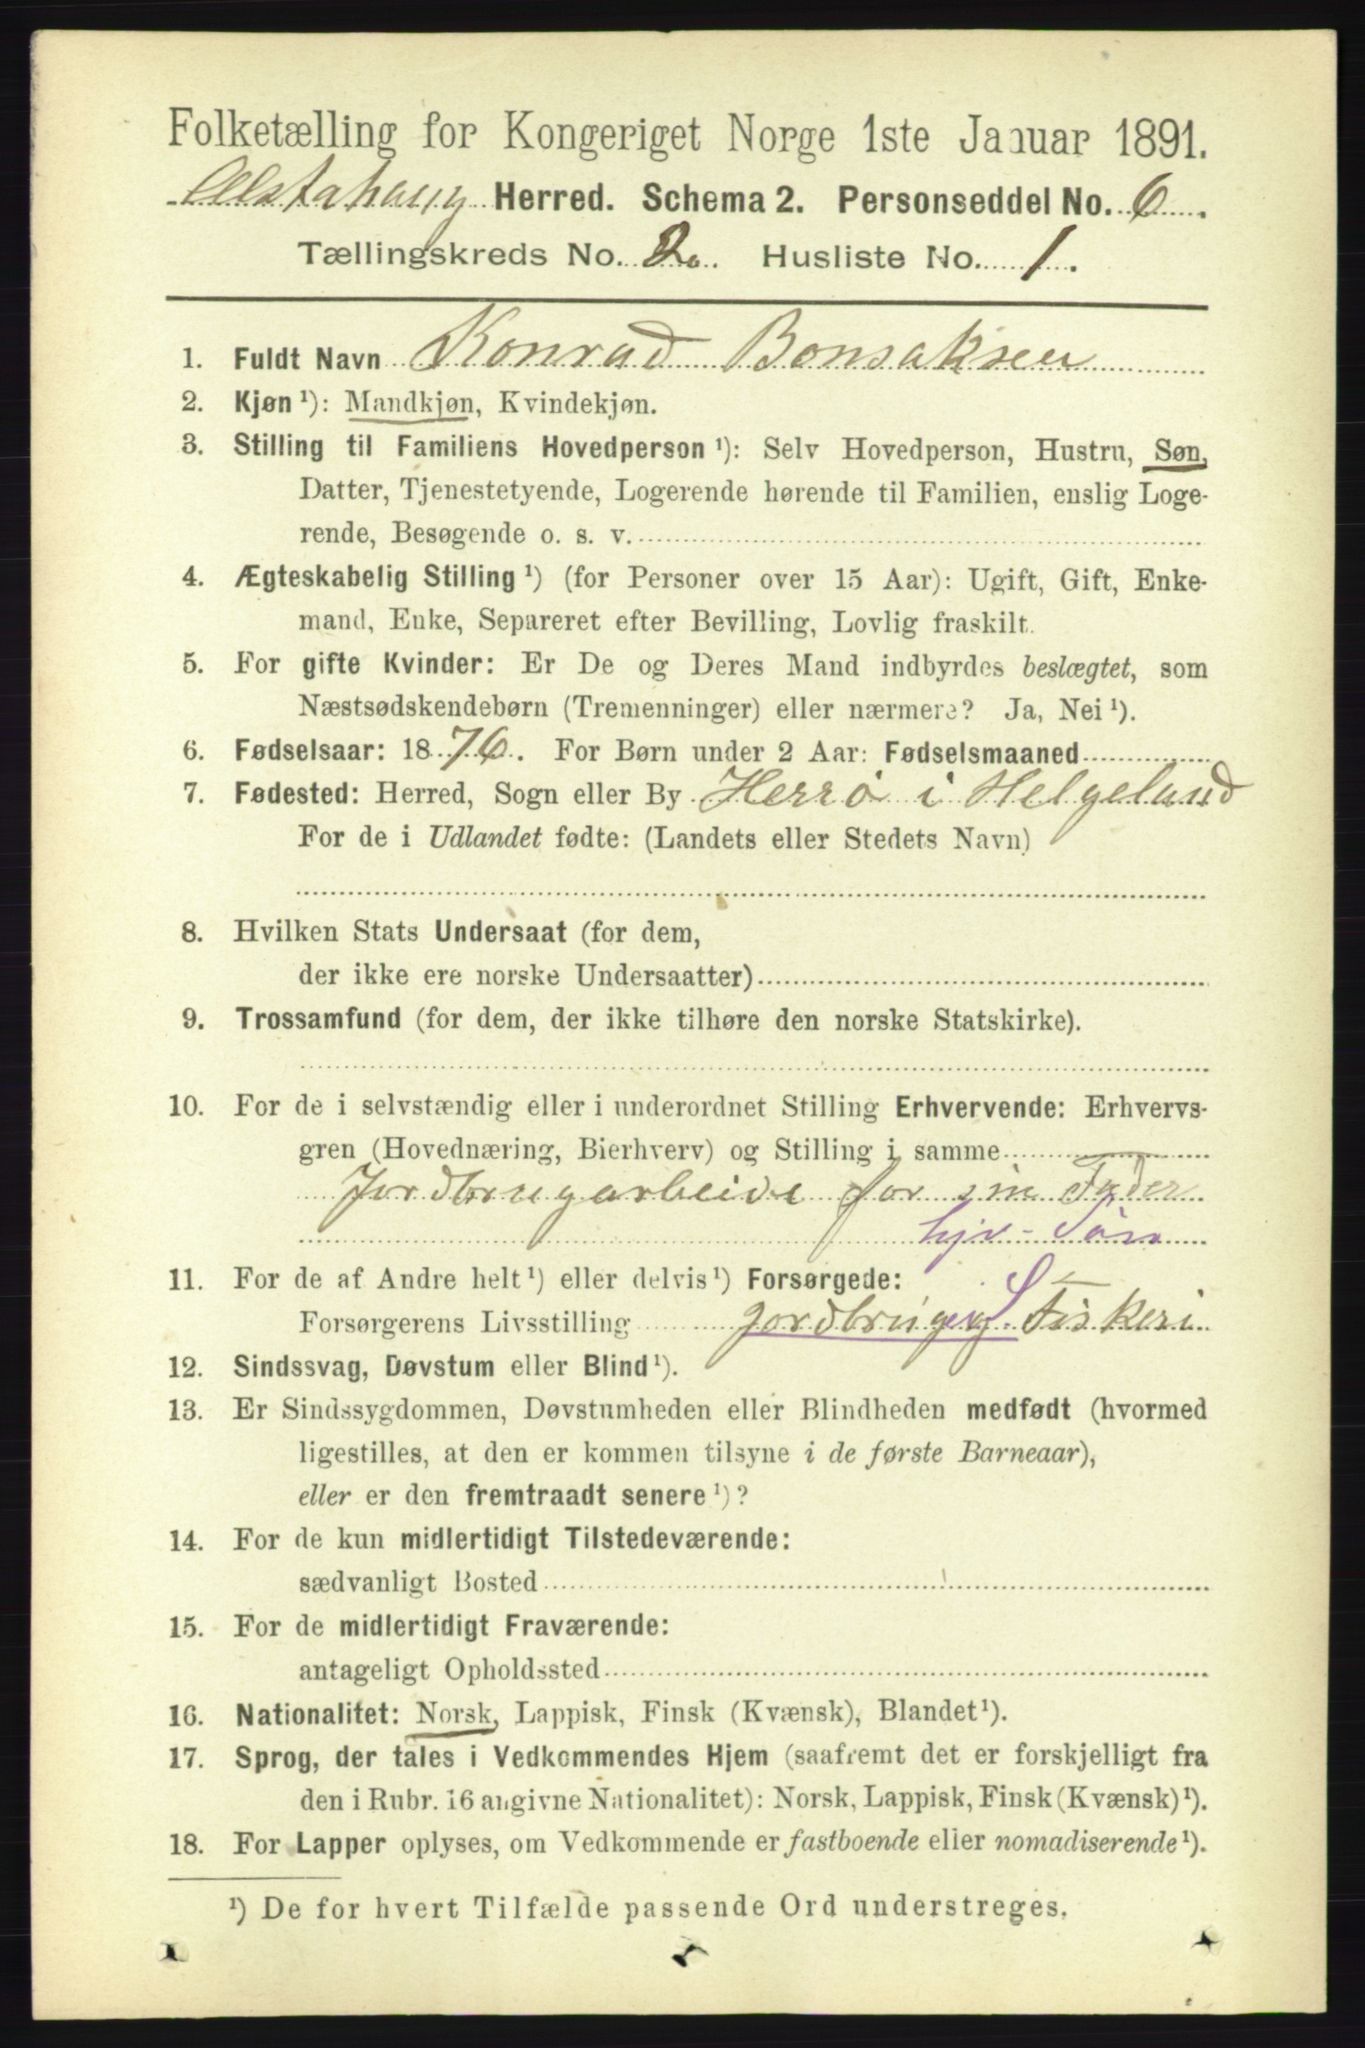 Folketælling for Kongeriget Norge 1ste Januar 1891.
Alstahaug Herred. Schema 2. Personseddel No. 6.
Tællingskreds No. 2. Husliste No. 1.
1. Fuldt Navn Konrad Bonsaksen
2. Kjøn ¹): Mandkjøn, Kvindekjøn.
3. Stilling til Familiens Hovedperson ¹): Selv Hovedperson, Hustru, Søn,
Datter, Tjenestetyende, Logerende hørende til Familien, enslig Loge-
rende, Besøgende o. s. v.
4. Ægteskabelig Stilling ¹) (for Personer over 15 Aar): Ugift, Gift, Enke-
mand, Enke, Separeret efter Bevilling, Lovlig fraskilt.
5. For gifte Kvinder: Er De og Deres Mand indbyrdes beslægtet, som
Næstsødskendebørn (Tremenninger) eller nærmere? Ja, Nei ¹).
6. Fødselsaar: 1876. For Børn under 2 Aar: Fødselsmaaned
7. Fødested: Herred, Sogn eller By Herrø i Helgeland
For de i Udlandet fødte: (Landets eller Stedets Navn)
8. Hvilken Stats Undersaat (for dem,
der ikke ere norske Undersaatter)
9. Trossamfund (for dem, der ikke tilhøre den norske Statskirke).
10. For de i selvstændig eller i underordnet Stilling Erhvervende: Erhvervs-
gren (Hovednæring, Bierhverv) og Stilling i samme
Jordbrugarbeide for sin Fader
hjv - Søn
11. For de af Andre helt ¹) eller delvis ¹) Forsørgede:
Forsørgerens Livsstilling Jordbrug og Fiskeri
12. Sindssvag, Døvstum eller Blind ¹).
13. Er Sindssygdommen, Døvstumheden eller Blindheden medfødt (hvormed
ligestilles, at den er kommen tilsyne i de første Barneaar),
eller er den fremtraadt senere ¹)?
14. For de kun midlertidigt Tilstedeværende:
sædvanligt Bosted
15. For de midlertidigt Fraværende:
antageligt Opholdssted
16. Nationalitet: Norsk, Lappisk, Finsk (Kvænsk), Blandet ¹).
17. Sprog, der tales i Vedkommendes Hjem (saafremt det er forskjelligt fra
den i Rubr. 16 angivne Nationalitet): Norsk, Lappisk, Finsk (Kvænsk) ¹).
18. For Lapper oplyses, om Vedkommende er fastboende eller nomadiserende ¹).
¹) De for hvert Tilfælde passende Ord understreges.